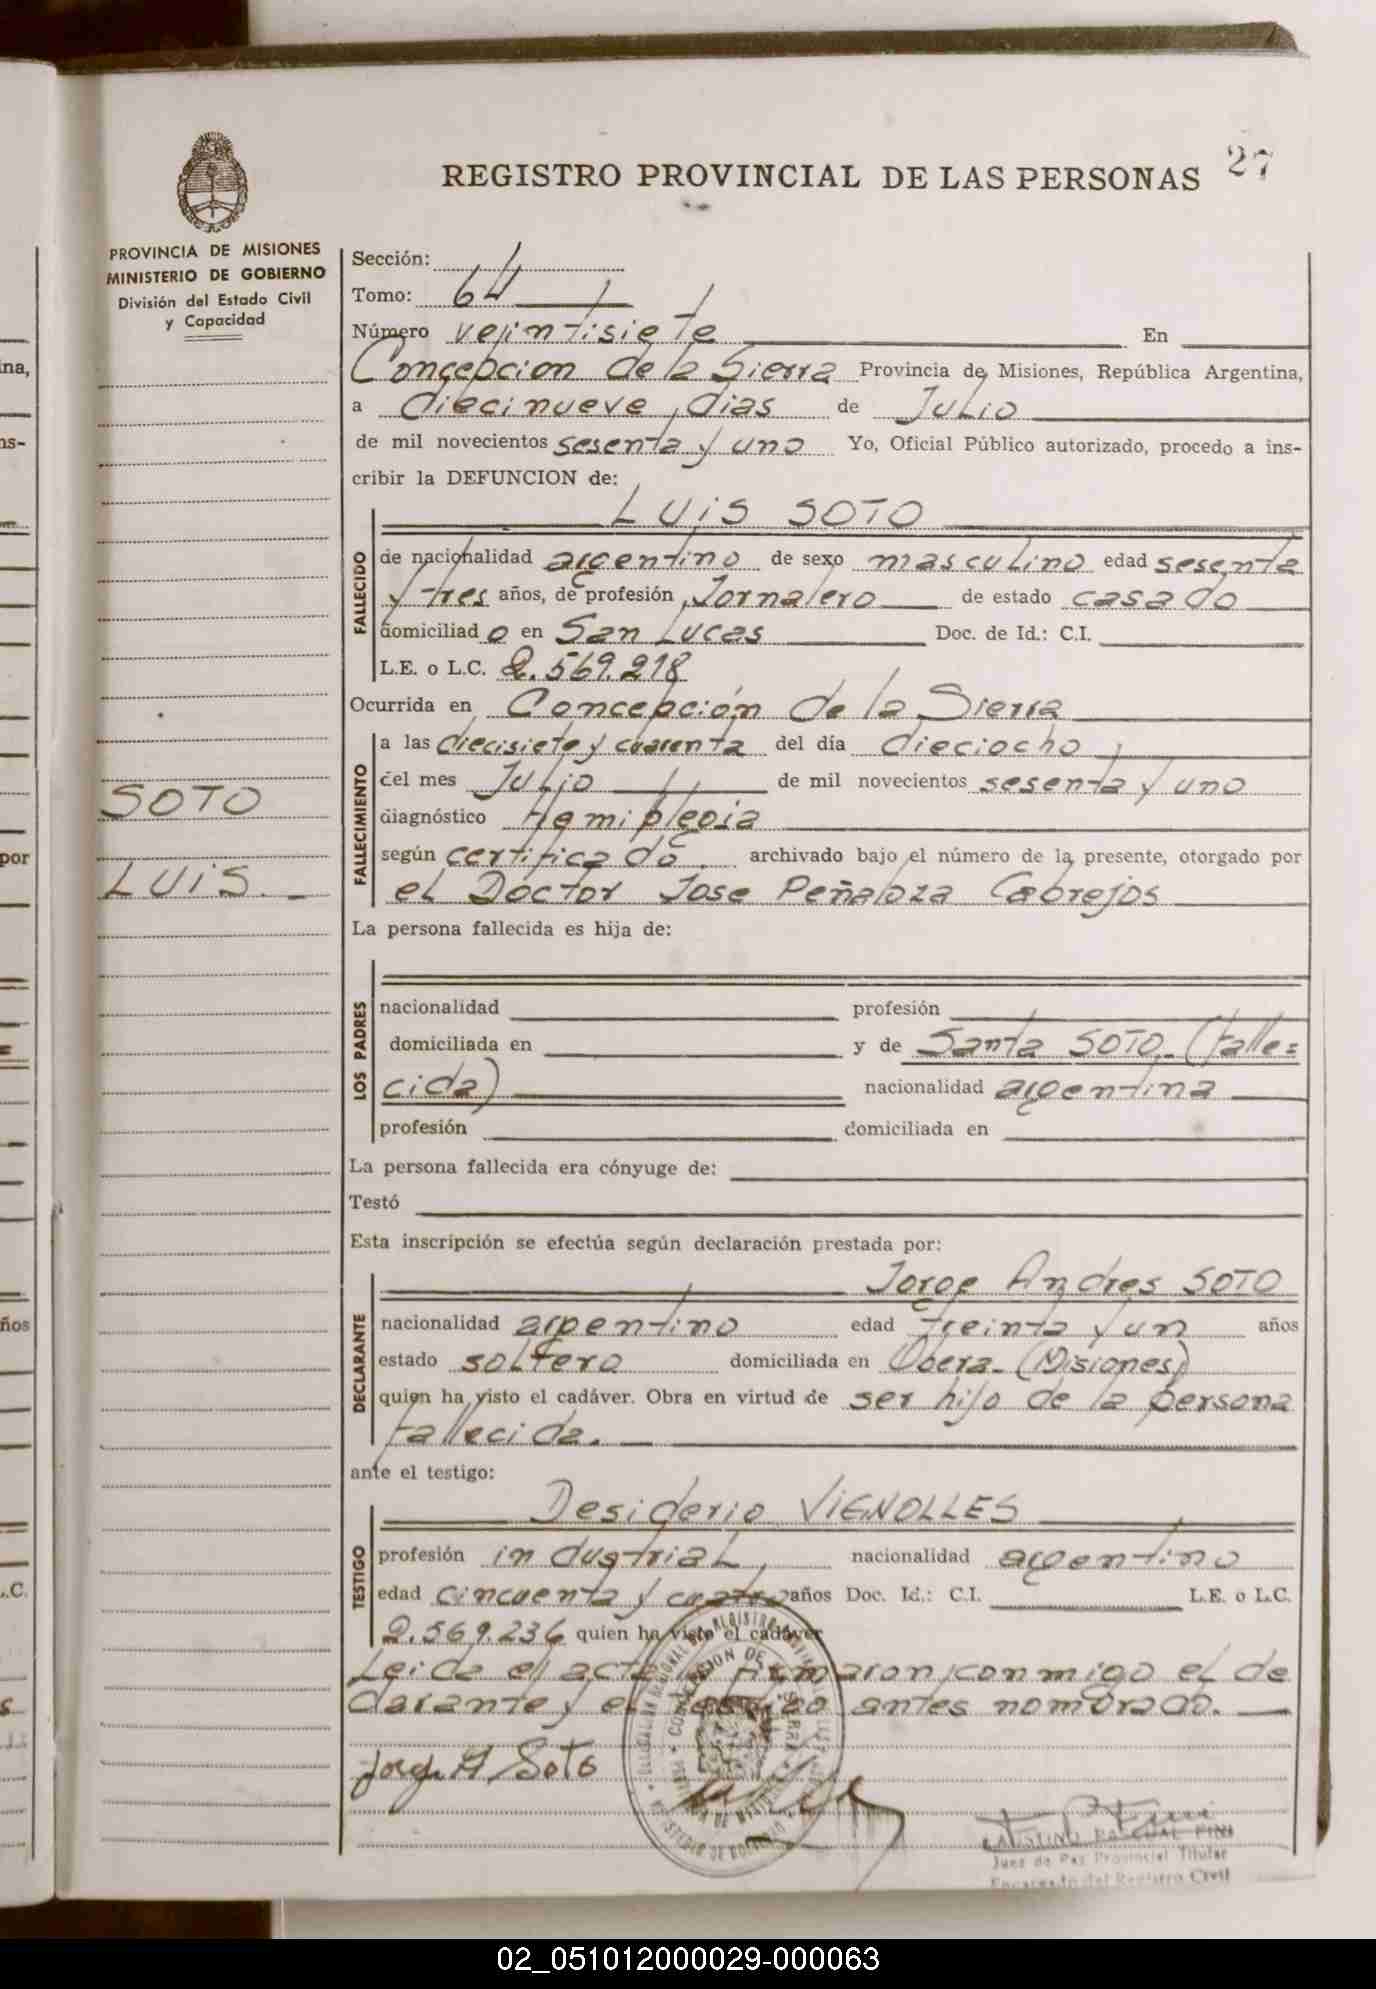 27
REGISTRO PROVINCIAL DE LAS PERSONAS
PROVINCIA DE MISIONES
MINISTERIO DE GOBIERNO
División del Estado Civil
y Capacidad
SOTO
LUIS.
Sección:
Tomo: 64
Número veintisiete En
Concepcion de la Sierra Provincia de Misiones, República Argentina,
a diecinueve dias de Julio
de mil novecientos sesenta y uno Yo, Oficial Público autorizado, procedo a ins-
cribir la DEFUNCION de:
LUIS SOTO
FALLECIDO
de nacionalidad argentino de sexo masculino edad sesenta
y tres años, de profesión Jornalero de estado casado
domiciliad o en San Lucas Doc. de Id.: C.I.
L.E. o L.C. 2.569.218
Ocurrida en Concepción de la Sierra
FALLECIMIENTO
a las diecisiete y cuarenta del día dieciocho
del mes Julio de mil novecientos sesenta y uno
diagnóstico Hemiplegia
según certificado archivado bajo el número de la presente, otorgado por
el Doctor Jose Peñaloza Cabrejos
La persona fallecida es hija de:
LOS PADRES
nacionalidad profesión
domiciliada en y de Santa SOTO. (falle=
cida) nacionalidad argentina
profesión domiciliada en
La persona fallecida era cónyuge de:
Testó
Esta inscripción se efectúa según declaración prestada por:
Jorge Andres SOTO
DECLARANTE
nacionalidad argentino edad treinta y un años
estado soltero domiciliada en Obera. (Misiones)
quien ha visto el cadáver. Obra en virtud de ser hijo de la persona
fallecida.
ante el testigo:
Desiderio VIGNOLLES
TESTIGO
profesión industrial nacionalidad argentino
edad cincuenta y cuatro años Doc. Id.: C.I. L.E. o L.C.
2.569.236 quien ha visto el cadáver
Leida el acta firmaron conmigo el de
clarante y el testigo antes nombrado.
Jorge A Soto
Juez de Paz Provincial Titular
Encargado del Registro Civil
por
ños
02_051012000029-000063